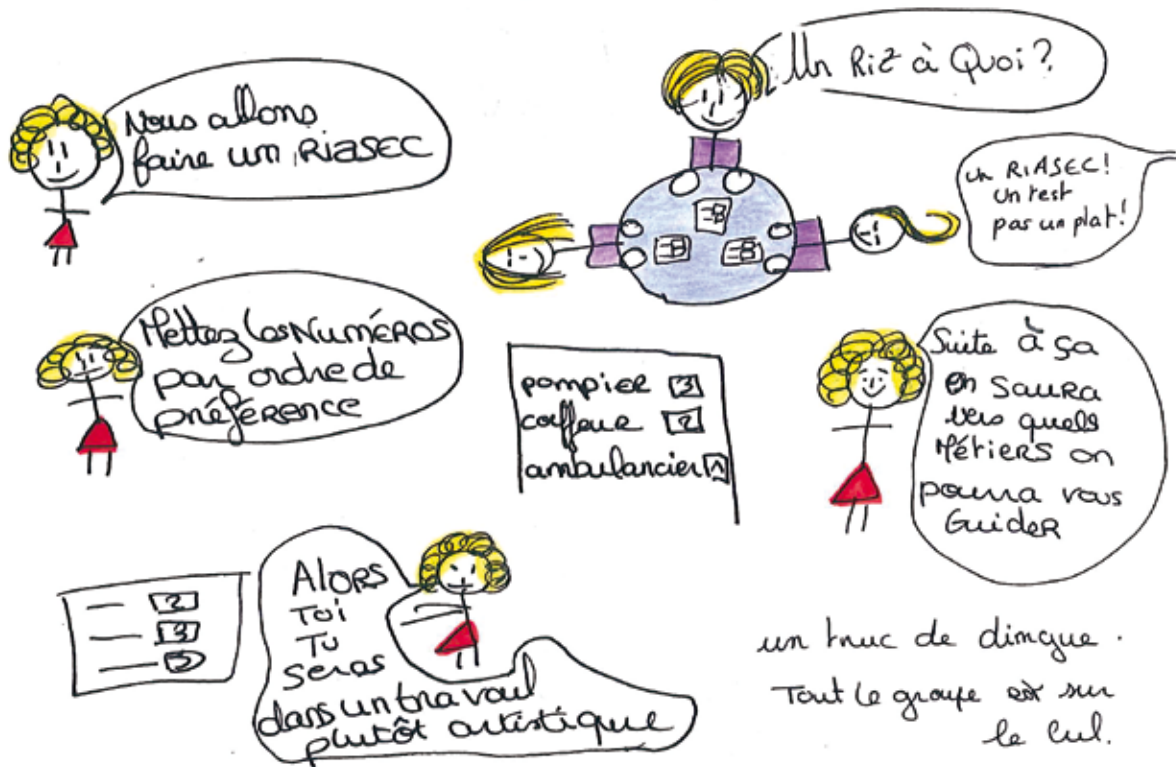 Nous allons
faire un RIASEC
Un Riz à Quoi ?
un RIASEC !
un test
pas un plat !
Mettez les NuméROS
par ordre de
préférence
pompier 3
coiffeur 2
ambulancier 1
Suite à ça
on saura
vers quels
Métiers on
pourra vous
GuideR
2
3
Alors
Toi
Tu
seras
dans un travail
plutôt artistique
un truc de dingue.
Tout le groupe est sur
le cul.